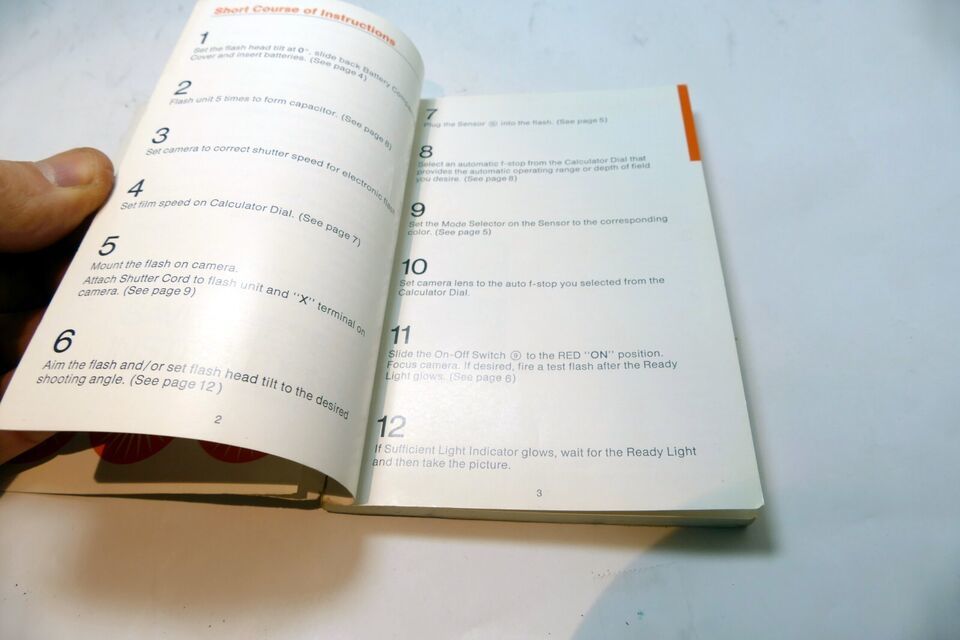 Short Course of Instructions
1
Set the flash head tilt at 0°, slide back Battery
Cover and insert batteries. (See page 4)
2
Flash unit 5 times to form capacitor. (See page 6)
3
Set camera to correct shutter speed for electronic flash
4
Set film speed on Calculator Dial. (See page 7)
5
Mount the flash on camera.
Attach Shutter Cord to flash unit and "X" terminal on
camera. (See page 9)
6
Aim the flash and/or set flash head tilt to the desired
shooting angle. (See page 12)
2
7
Plug the Sensor ⑤ into the flash. (See page 5)
8
Select an automatic f-stop from the Calculator Dial that
provides the automatic operating range or depth of field
you desire. (See page 8)
9
Set the Mode Selector on the Sensor to the corresponding
color. (See page 5)
10
Set camera lens to the auto f-stop you selected from the
Calculator Dial.
11
Slide the On-Off Switch ⑨ to the RED "ON" position.
Focus camera. If desired, fire a test flash after the Ready
Light glows. (See page 6)
12
If Sufficient Light Indicator glows, wait for the Ready Light
and then take the picture.
3